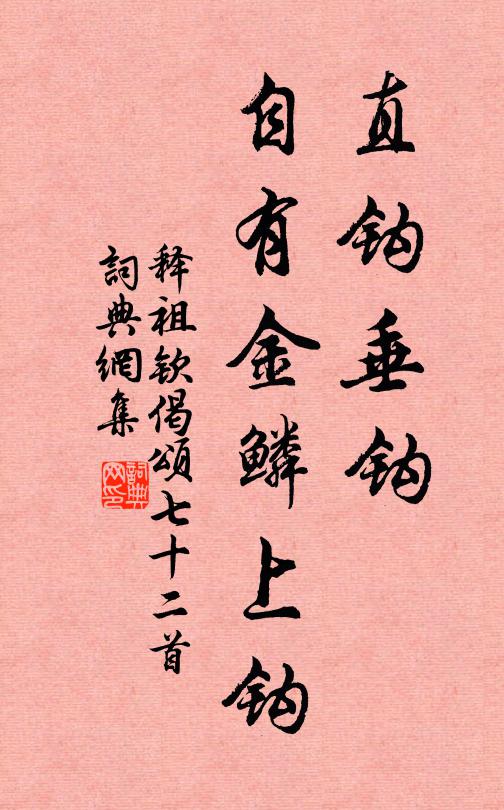 直钩垂钩
自有金鳞上钩
释祖钦偈颂七十二首
詞典網集
詞典
网印